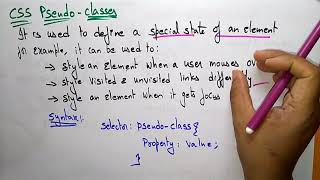 CSS Pseudo-classes
It is used to define a special state of an element
for Example, it can be used to:
→ style an Element when a user mouses ov
→ style visited & unvisited links differently
→ style an element when it gets focus
Syntax:
selector: pseudo-class{
Property: value;
}